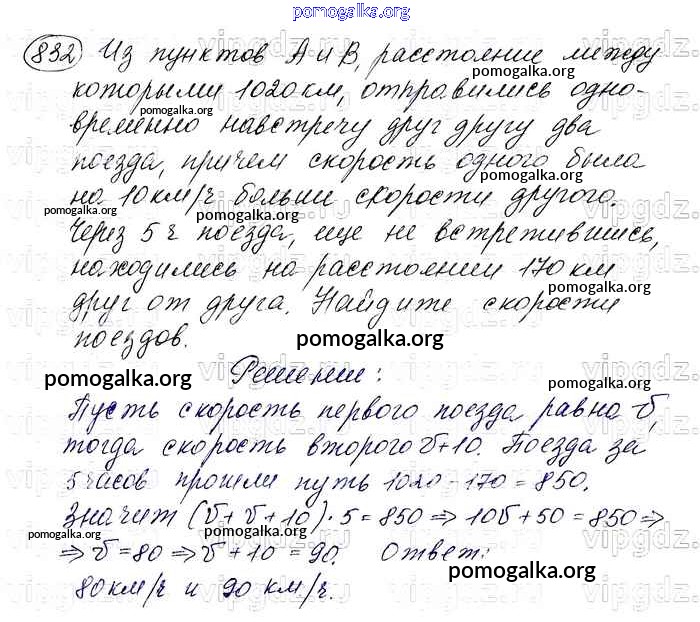 pomogalka.org
832 Из пунктов А и В, расстояние между
pomogalka.org
которыми 1020 км, отправились одно-
pomogalka.org
временно навстречу друг другу два
поезда, причем скорость одного была
pomogalka.org
на 10 км/ч больше скорости другого.
pomogalka.org
pomogalka.org
Через 5 ч поезда, еще не встретившись,
находились на расстоянии 170 км
pomogalka.org
друг от друга. Найдите скорости
поездов. pomogalka.org
Решение:
pomogalka.org pomogalka.org
Пусть скорость первого поезда равна υ,
тогда скорость второго υ+10. Поезда за
5 часов прошли путь 1020-170=850.
pomogalka.org
Значит (υ+υ+10)·5=850 ⇒ 10υ+50=850 ⇒
pomogalka.org
⇒ υ=80 ⇒ υ+10=90. Ответ:
pomogalka.org
80 км/ч и 90 км/ч.
pomogalka.org